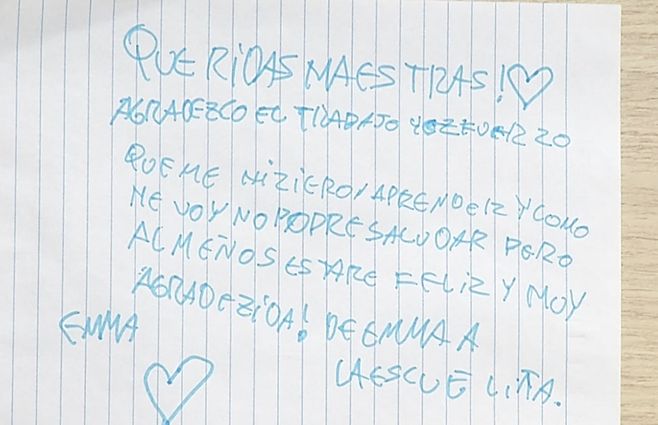 QUERIDAS MAESTRAS!
AGRADEZCO EL TRADAJO Y EZFUERZO
QUE ME HIZIERON APRENDER Y COMO
ME VOY NO PODRE SALUDAR PERO
AL MEÑOS ESTARE FELIZ Y MUY
AGRADEZIDA! DE EMMA A
LA ESCUELITA.
EMMA